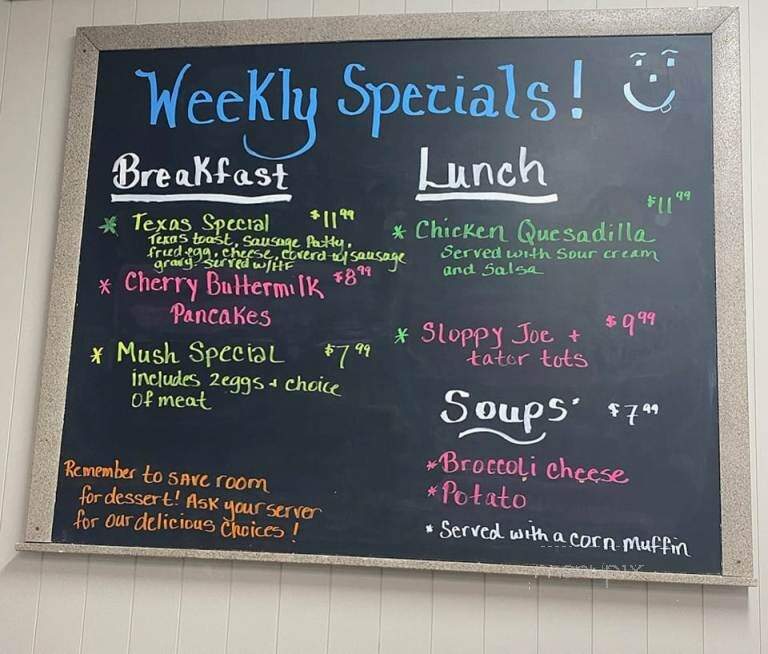 Weekly Specials!
Breakfast
* Texas Special $11.99
Texas toast, sausage Patty,
fried egg, cheese, coverd w/ sausage
gravy. served w/HF
* Cherry Buttermilk $8.99
Pancakes
* Mush Special $7.99
includes 2eggs + choice
of meat
Remember to save room
for dessert! Ask your server
for our delicious choices!
Lunch
$11.99
* Chicken Quesadilla
Served with sour cream
and Salsa
* Sloppy Joe + $9.99
tator tots
Soups $7.99
*Broccoli cheese
*Potato
* Served with a corn muffin